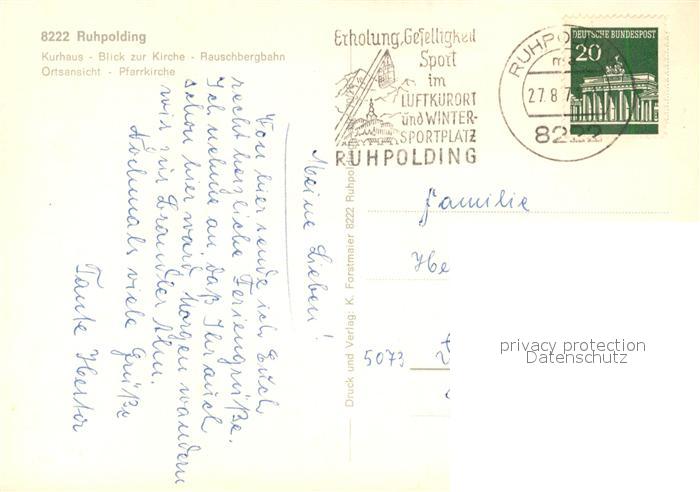 8222 Ruhpolding
Kurhaus - Blick zur Kirche - Rauschbergbahn
Ortsansicht - Pfarrkirche
Erholung, Geselligkeit
Sport
im
LUFTKURORT
und WINTER-
SPORTPLATZ
RUHPOLDING
RUHPO
27.8.7
8222
DEUTSCHE BUNDESPOST
20
Meine Lieben!
Von hier sende ich Euch
recht herzliche Feriengrüße.
Ich nehme an, daß Ihr auch
schon hier ward. Morgen wandern
wir zur Brandler Alm.
Nochmals viele Grüße
Tante Herta
Druck und Verlag: K. Forstmaier 8222 Ruhpol
Familie
He
5073
privacy protection
Datenschutz